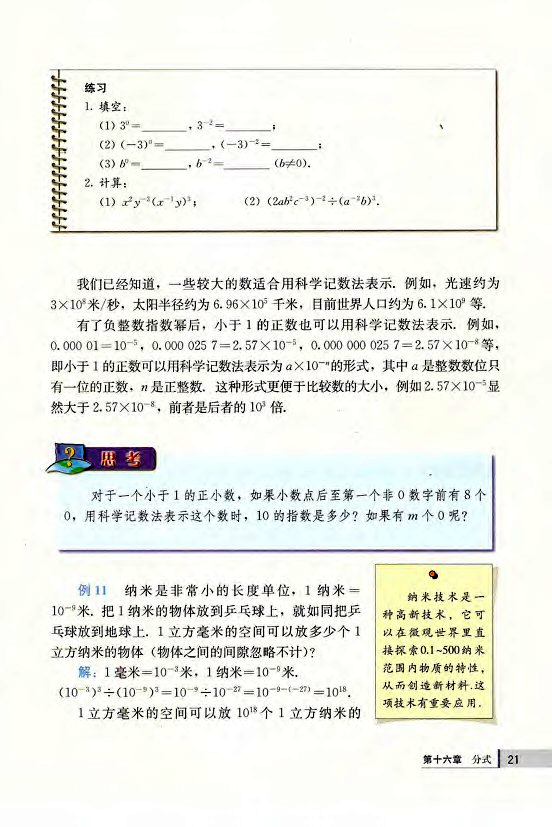 练习
1. 填空：
(1) 3⁰＝________，3⁻²＝________；
(2) (－3)⁰＝________，(－3)⁻²＝________；
(3) b⁰＝________，b⁻²＝________ (b≠0).
2. 计算：
(1) x²y⁻³(x⁻¹y)³； (2) (2ab²c⁻³)⁻²÷(a⁻²b)³.
我们已经知道，一些较大的数适合用科学记数法表示. 例如，光速约为
3×10⁸米/秒，太阳半径约为 6.96×10⁵ 千米，目前世界人口约为 6.1×10⁹ 等.
有了负整数指数幂后，小于 1 的正数也可以用科学记数法表示. 例如，
0.000 01＝10⁻⁵，0.000 025 7＝2.57×10⁻⁵，0.000 000 025 7＝2.57×10⁻⁸等，
即小于 1 的正数可以用科学记数法表示为 a×10⁻ⁿ的形式，其中 a 是整数数位只
有一位的正数，n 是正整数. 这种形式更便于比较数的大小，例如2.57×10⁻⁵显
然大于 2.57×10⁻⁸，前者是后者的 10³ 倍.
? 思考
对于一个小于 1 的正小数，如果小数点后至第一个非 0 数字前有 8 个
0，用科学记数法表示这个数时，10 的指数是多少？如果有 m 个 0 呢？
例 11 纳米是非常小的长度单位，1 纳米＝
10⁻⁹米. 把 1 纳米的物体放到乒乓球上，就如同把乒
乓球放到地球上. 1 立方毫米的空间可以放多少个 1
立方纳米的物体（物体之间的间隙忽略不计）？
解：1 毫米＝10⁻³米，1 纳米＝10⁻⁹米.
(10⁻³)³÷(10⁻⁹)³＝10⁻⁹÷10⁻²⁷＝10⁻⁹⁻⁽⁻²⁷⁾＝10¹⁸.
1 立方毫米的空间可以放 10¹⁸ 个 1 立方纳米的
纳米技术是一
种高新技术，它可
以在微观世界里直
接探索0.1~500纳米
范围内物质的特性，
从而创造新材料.这
项技术有重要应用.
第十六章 分式 21